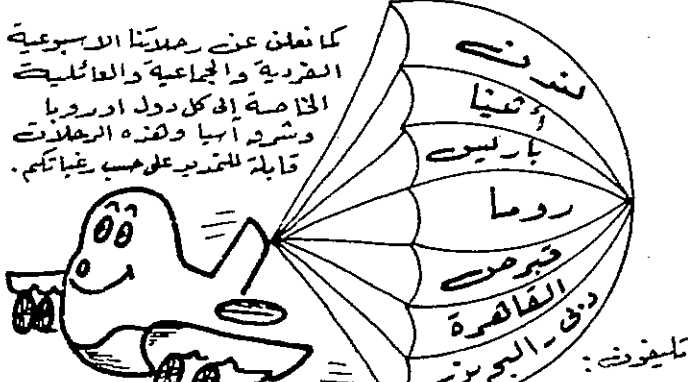 كما نعلن عن رحلاتنا الاسبوعية
الفردية والجماعية والعائلية
الخاصة إلى كل دول اوروبا
وشرق آسيا وهذه الرحلات
قابلة للتمديد على حسب رغباتكم.
لندن
أثينا
باريس
روما
قبرص
القاهرة
دبي - البحرين
تليفون: